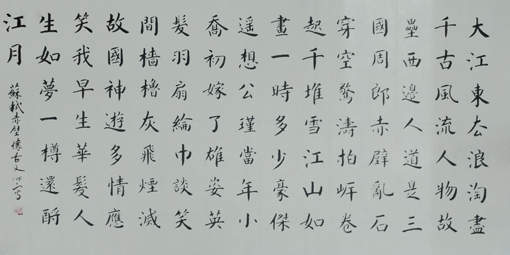 大江東去浪淘盡
千古風流人物故
壘西邊人道是三
國周郎赤壁亂石
穿空驚濤拍岸卷
起千堆雪江山如
畫一時多少豪傑
遙想公瑾當年小
喬初嫁了雄姿英
髮羽扇綸巾談笑
間檣櫓灰飛煙滅
故國神遊多情應
笑我早生華髮人
生如夢一樽還酹
江月
蘇軾赤壁懷古